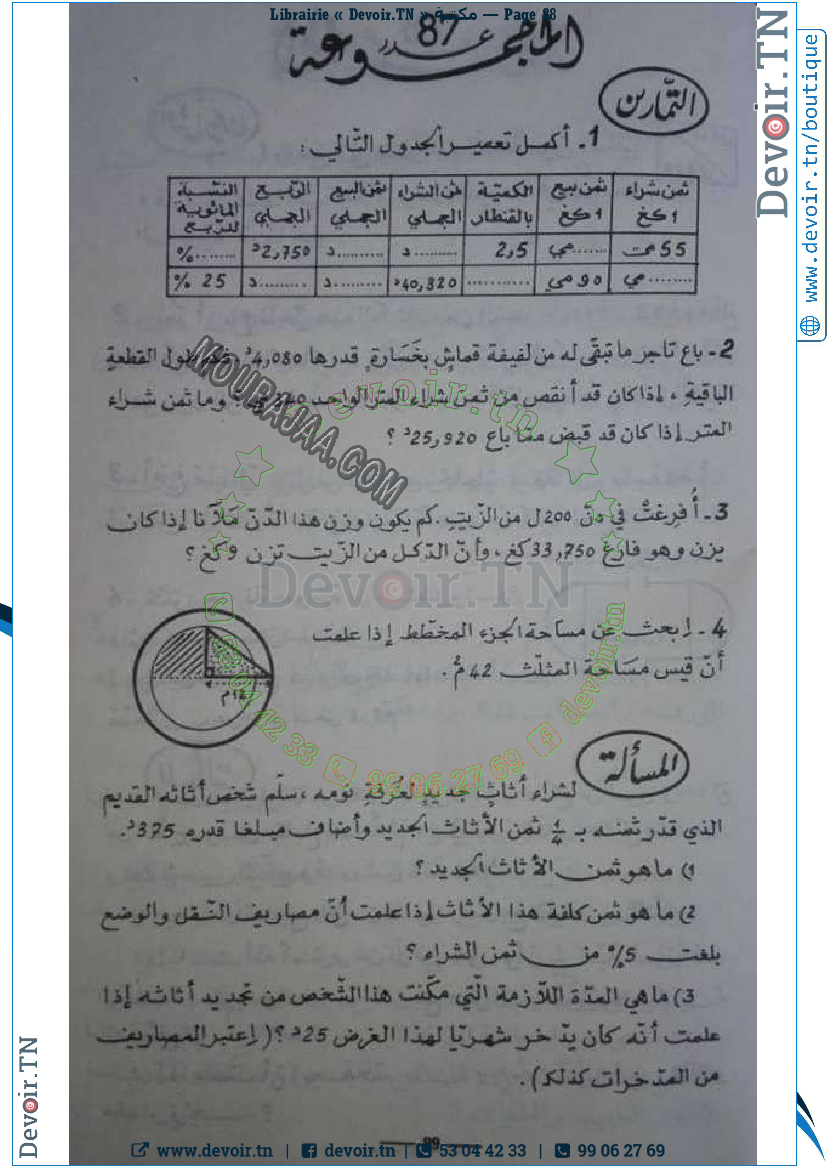 Librairie « Devoir.TN » مكتبة — Page 88
المجموعة عدد 87
التمارين
1. أكمل تعمير الجدول التالي :
ثمن شراء 1 كغ | ثمن بيع 1 كغ | الكمية بالقنطار | ثمن الشراء الجملي | ثمن البيع الجملي | الربح الجملي | النسبة المائوية للربح
55 مي | ........ مي | 2,5 | .......... د | .......... د | 2,750 د | ........ %
........ مي | 90 مي | .......... | 40,320 د | .......... د | .......... د | 25 %
2- باع تاجر ما تبقى له من لفيفة قماش بخسارة قدرها 4,080 د. فكم طول القطعة
الباقية، إذا كان قد أنقص من ثمن شراء المتر الواحد مي؟ وما ثمن شراء
المتر إذا كان قد قبض مما باع 25,920 د ؟
3- أفرغت في دن 200 ل من الزيت. كم يكون وزن هذا الدن ملآنا إذا كان
يزن وهو فارغ 33,750 كغ، وأن الدكل من الزيت تزن 9 كغ ؟
4- إبحث عن مساحة الجزء المخطط إذا علمت
أن قيس مساحة المثلث 42 م².
المسألة
لشراء أثاث جديد لغرفة نومه، سلم شخص أثاثه القديم
الذي قدر ثمنه بـ 1/4 ثمن الأثاث الجديد وأضاف مبلغا قدره 375 د.
1) ما هو ثمن الأثاث الجديد ؟
2) ما هو ثمن كلفة هذا الأثاث إذا علمت أن مصاريف النقل والوضع
بلغت 5% من ثمن الشراء ؟
3) ما هي المدة اللازمة التي مكنت هذا الشخص من تجديد أثاثه إذا
علمت أنه كان يدخر شهريا لهذا الغرض 25 د ؟ (إعتبر المصاريف
من المدخرات كذلك).
99
MOURAJAA.COM
devoir.tn
Devoir.TN
53 04 42 33
99 06 27 69
devoir.tn
Devoir.TN
www.devoir.tn/boutique
Devoir.TN
www.devoir.tn | devoir.tn | 53 04 42 33 | 99 06 27 69